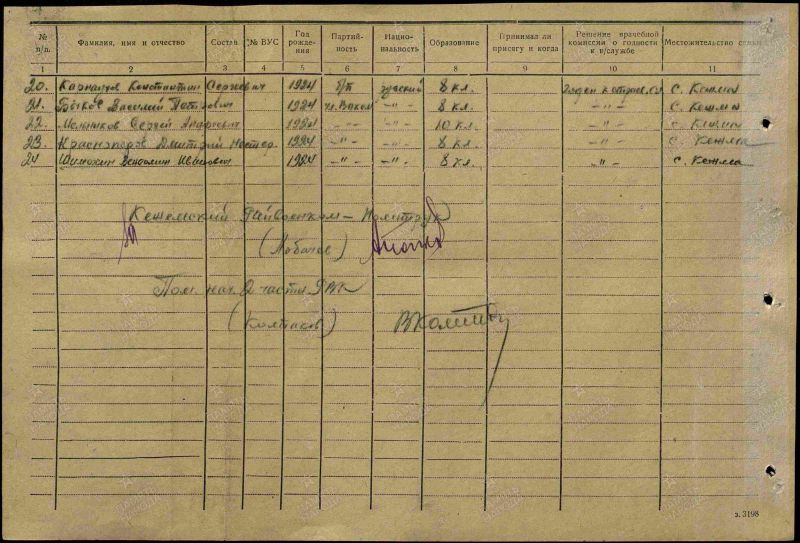 № п/п. Фамилия, имя и отчество Состав № ВУС Год рождения Партийность Национальность Образование Принимал ли присягу и когда Решение врачебной комиссии о годности к в/службе Местожительство семьи
1 2 3 4 5 6 7 8 9 10 11
20. Константин Сергеевич 1924 б/п русский 8 кл. Годен к строев. сл. с. Кежма
21. Быков Василий Петрович 1924 чл. ВЛКСМ -"- 8 кл. -"- с. Кежма
22. Мельников Сергей 1924 -"- -"- 10 кл. -"- с. Кежма
23. Дмитрий Нестер. 1924 -"- -"- 8 кл. -"- с. Кежма
24 Вениамин Иванович 1924 -"- -"- 8 кл. -"- с. Кежма
Кежемский Райвоенком — Политрук
(Лобачев)
Пом. нач. 2 части РВК
(Колпаков)
з. 3198